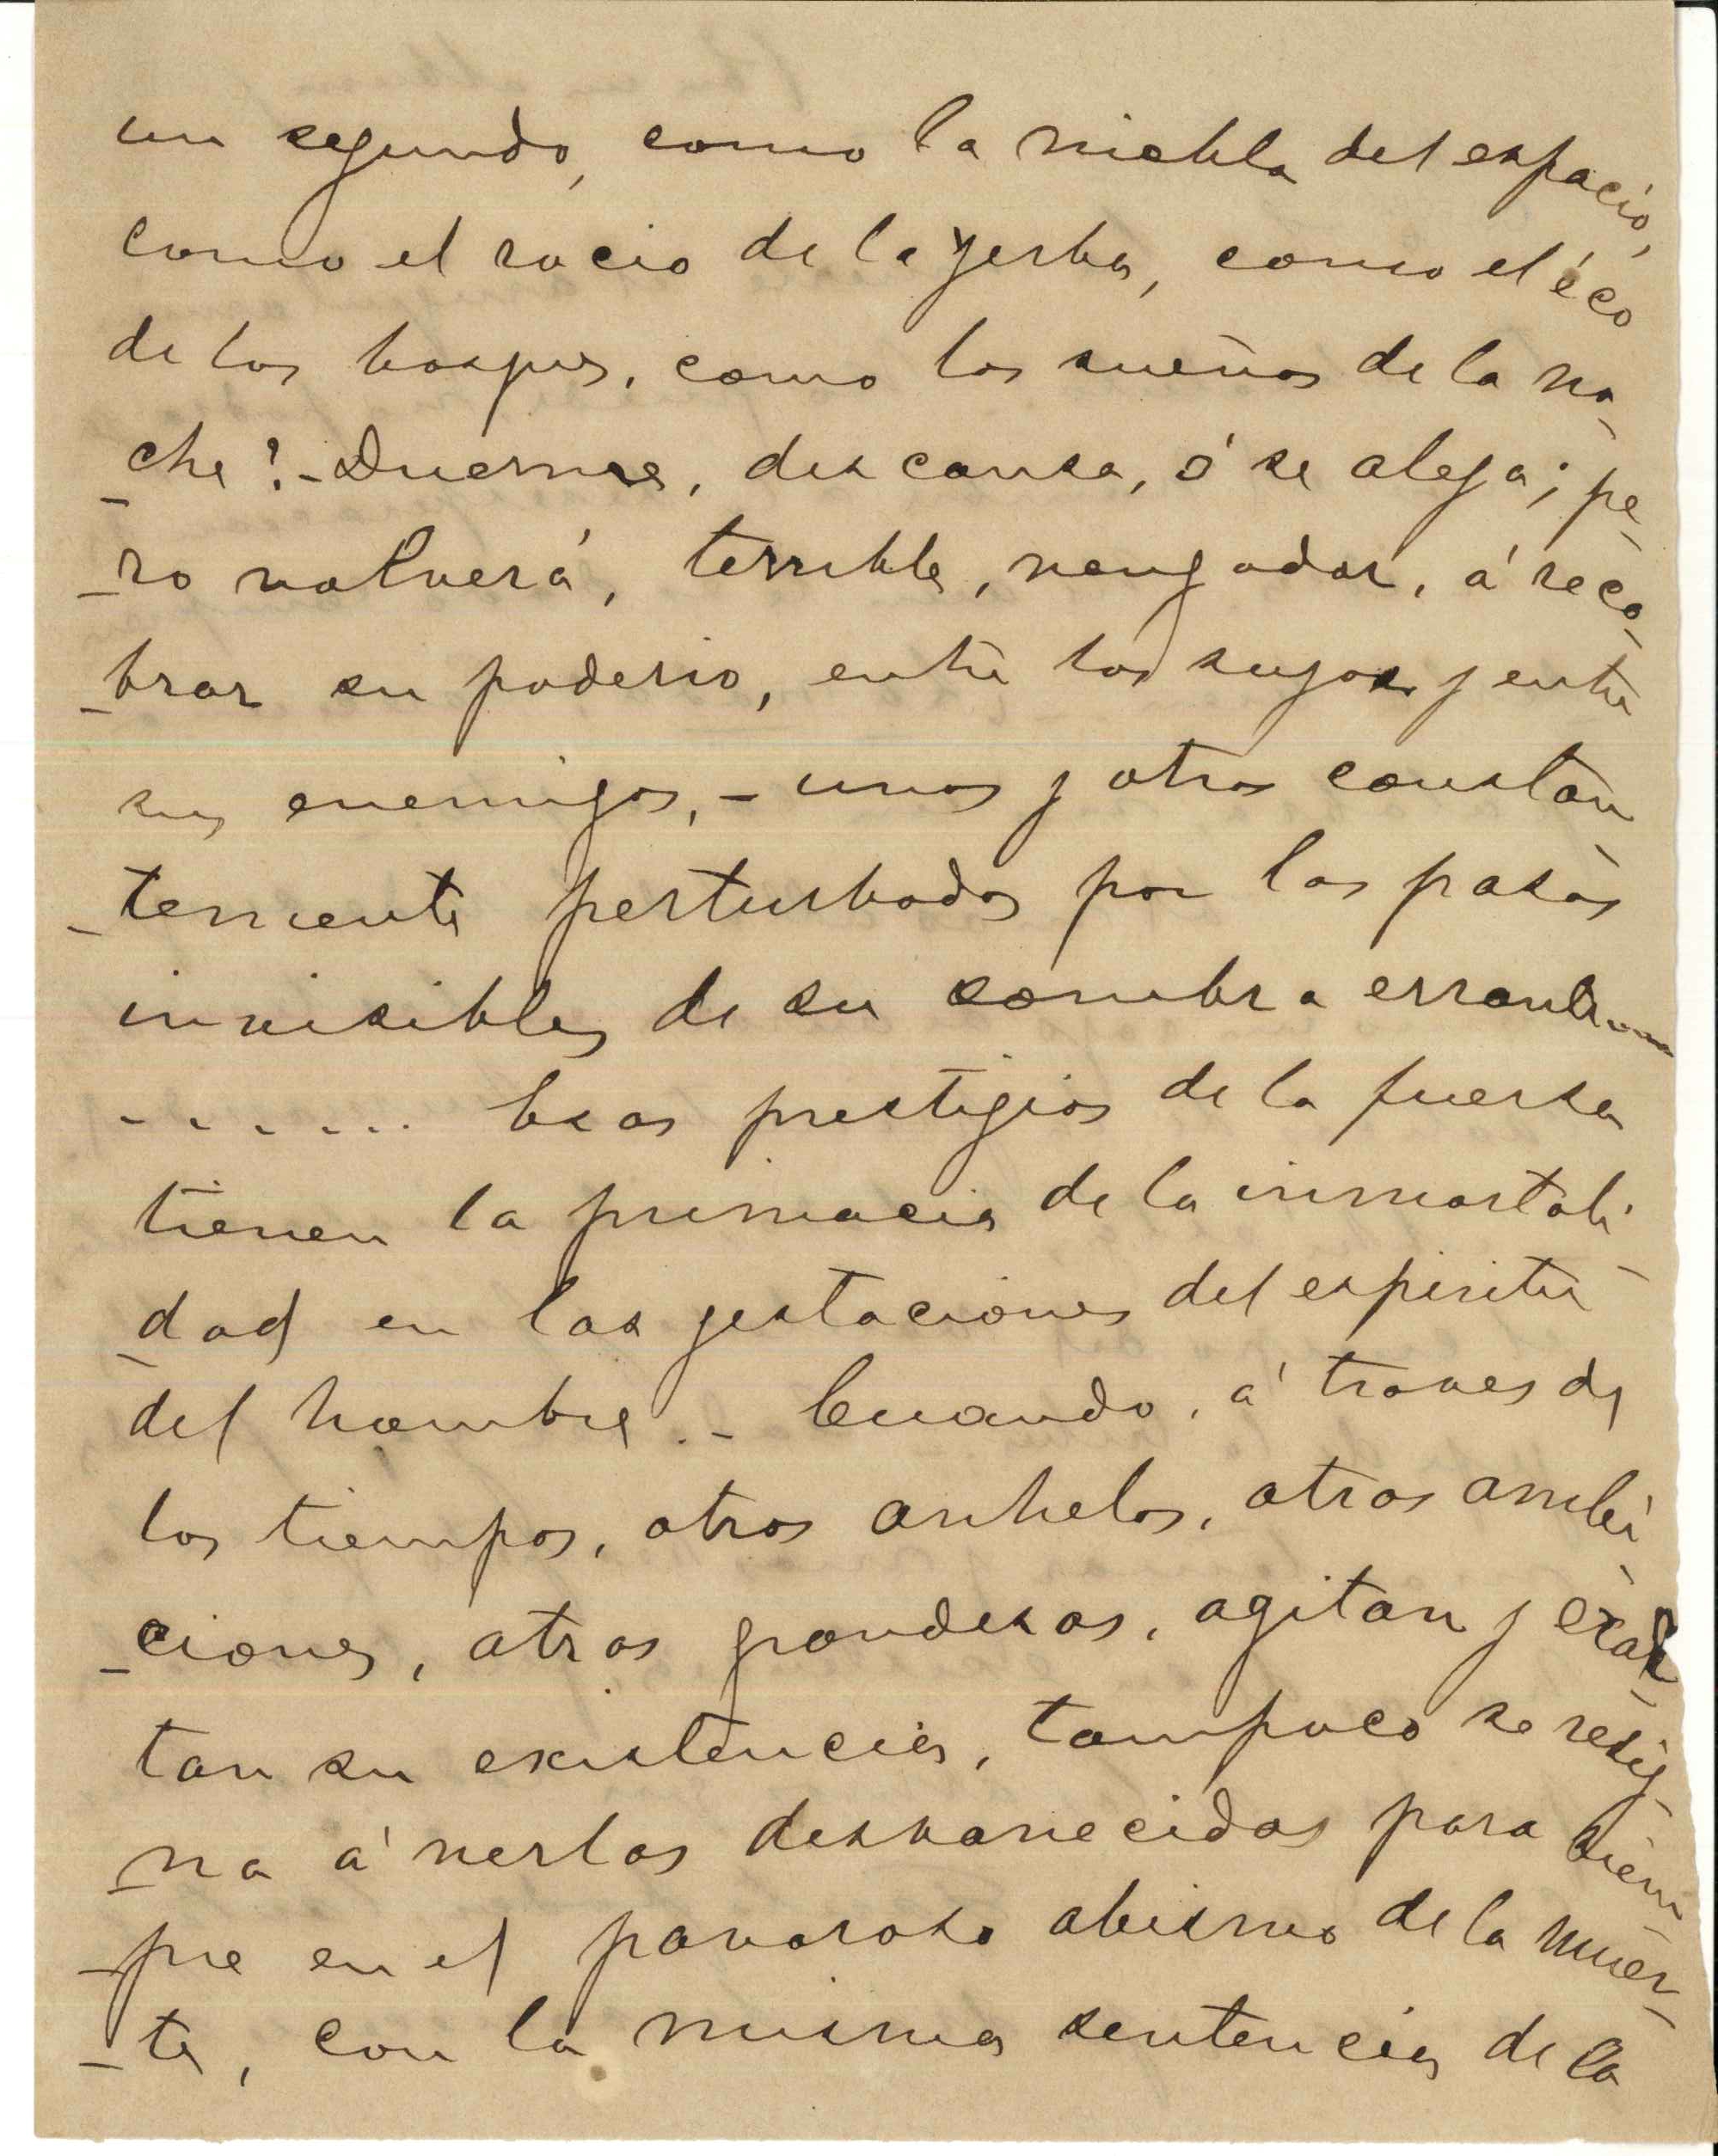 un segundo, como la niebla del espacio,
como el rocio de la yerba, como el éco
de los bosques, como los sueños de la no-
-che!-Duerme, descansa, ó se aleja; pe-
-ro volverá, terrible, vengador, á reco-
-brar su poderio, entre los suyos y entre
sus enemigos,-unos y otros constan-
-temente perturbados por los pasos
invisibles de su sombra errante....
. . . . . . . Esos prestigios de la fuerza
tienen la primacia de la inmortali-
-dad en las gestaciones del espiritu
del hombre.- Cuando, á traves de
los tiempos, otros anhelos, otras ambi-
-ciones, otras grandezas, agitan y exal-
tan su existencia, tampoco se resig-
-na á verlos desvanecidos para siem-
-pre en el pavoroso abismo de la muer-
-te, con la misma sentencia de la